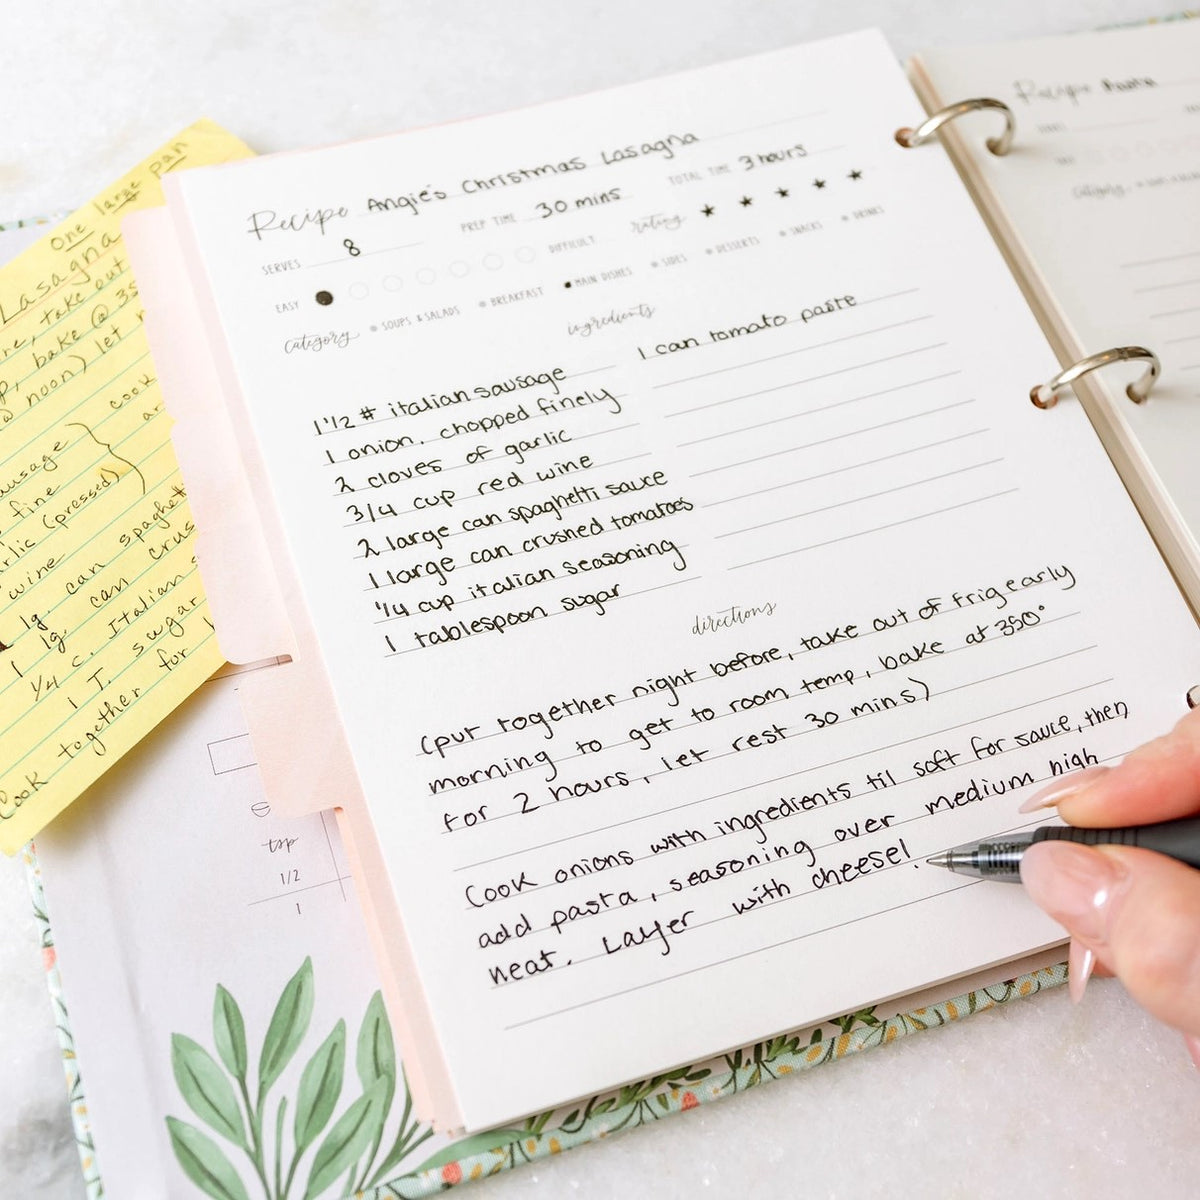 One large pan
Lasagna
take out
bake @ 35
@ noon) let
cook
sausage
fine
(pressed)
wine
1 lg. can spaghett
1 lg. can crus
1/4 c. Italian
1 T. sugar
Cook together for
tsp
1/2
1
Recipe Angie's Christmas Lasagna
SERVES 8 PREP TIME 30 mins TOTAL TIME 3 hours
EASY DIFFICULT rating ★ ★ ★ ★ ★
category SOUPS & SALADS BREAKFAST MAIN DISHES SIDES DESSERTS SNACKS DRINKS
ingredients
1 1/2 # italian sausage
1 onion, chopped finely
2 cloves of garlic
3/4 cup red wine
2 large can spaghetti sauce
1 large can crushed tomatoes
1/4 cup italian seasoning
1 tablespoon sugar
1 can tomato paste
directions
(put together night before, take out of frig early
morning to get to room temp, bake at 350°
for 2 hours, let rest 30 mins)
Cook onions with ingredients til soft for sauce, then
add pasta, seasoning over medium high
heat. Layer with cheese!
Recipe Pasta
category